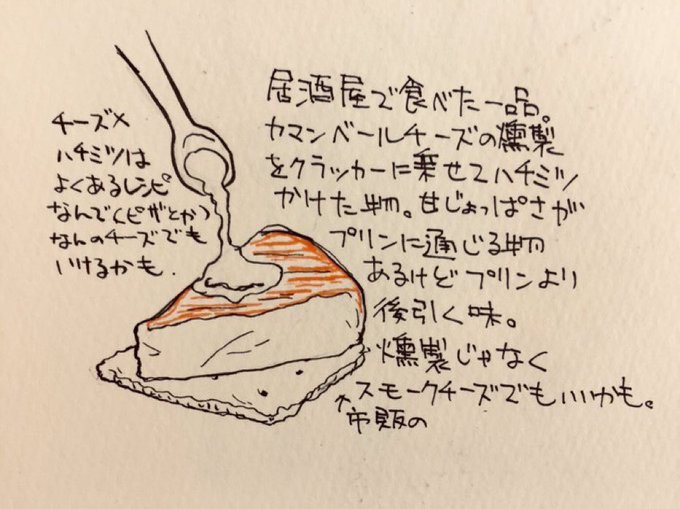 居酒屋で食べた一品。
カマンベールチーズの燻製
をクラッカーに乗せてハチミツ
かけた物。甘じょっぱさが
プリンに通じる物
あるけどプリンより
後引く味。
燻製じゃなく
スモークチーズでもいいかも。
↑市販の
チーズ×
ハチミツは
よくあるレシピ
なんで(ピザとか)
なんのチーズでも
いけるかも.